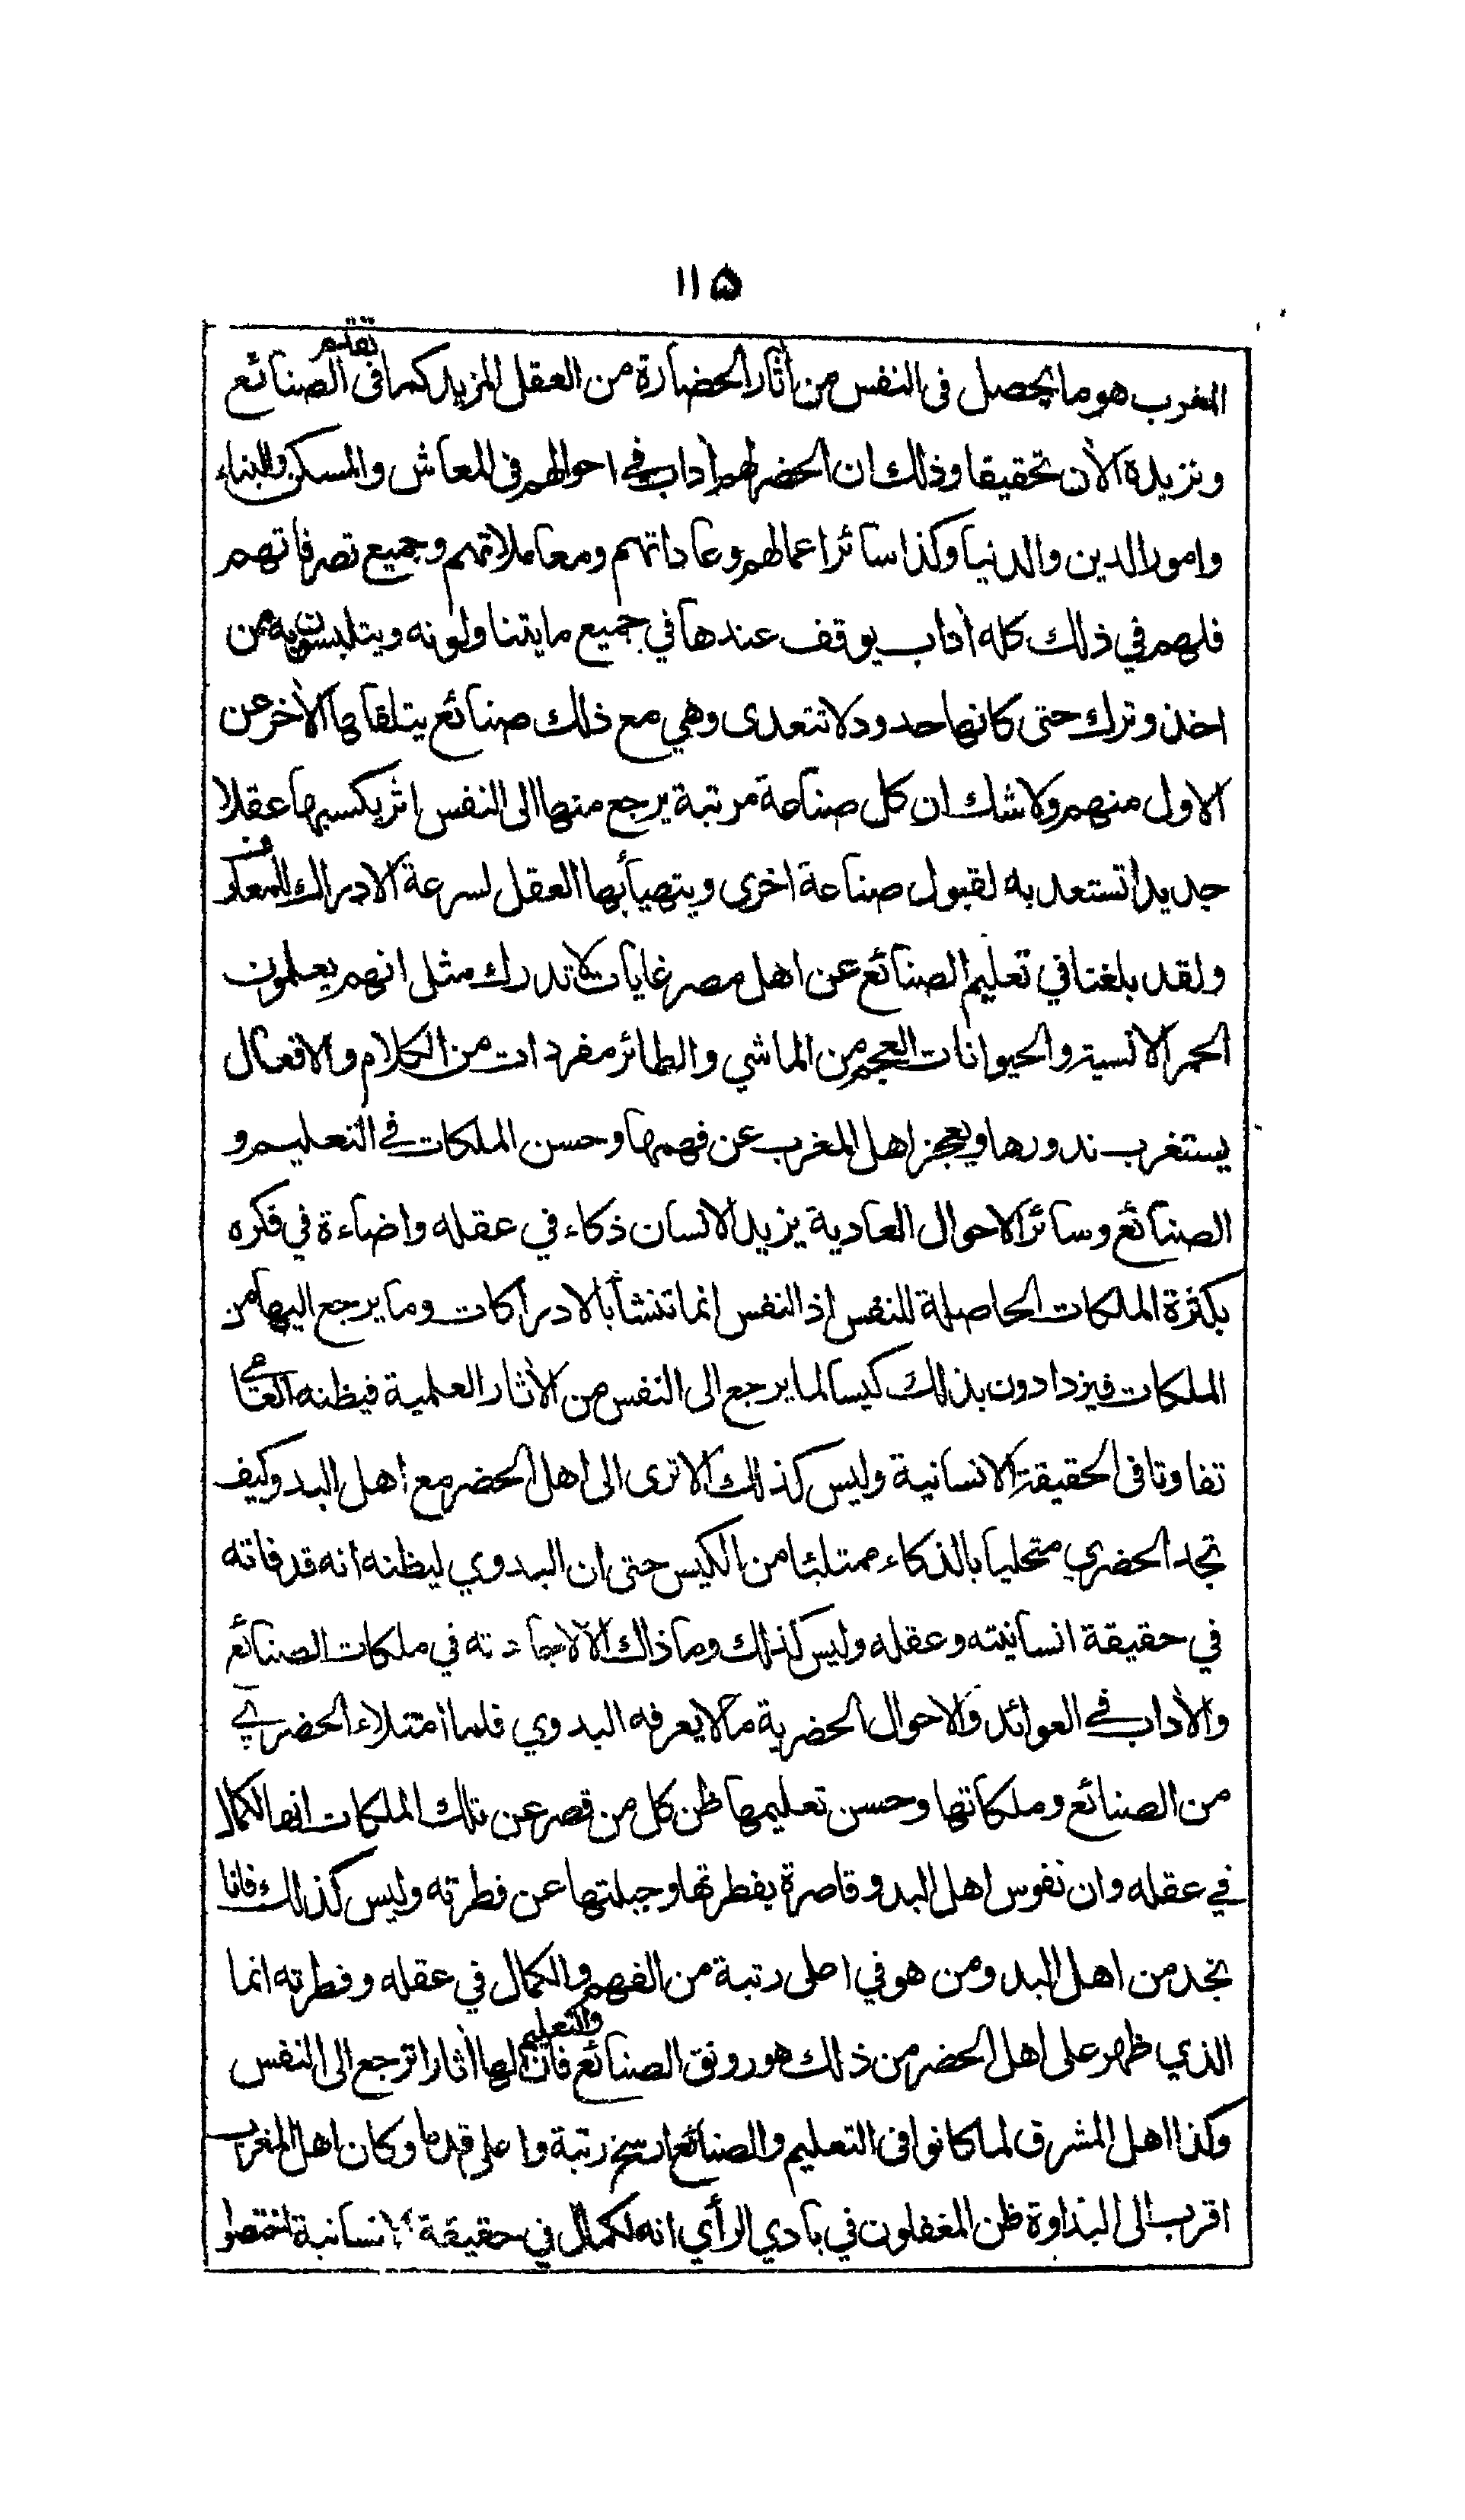 ١١۵
المغرب هو ما يحصل فى النفس من أثار الحضارة من العقل المزيد كما تقدم فى الصنائع
ونزيده الأن تحقيقا وذلك ان الحضر لهم أداب في احوالهم فى المعاش والمسكن والبناء
وامور الدين والدنيا وكذا سائر اعمالهم وعاداتهم ومعاملاتهم وجميع تصرفاتهم
فلهم في ذلك كله أداب يوقف عندها في جميع ما يتناولونه ويتلبسون به من
اخذ وترك حتى كانها حدود لا تتعدى وهي مع ذلك صنائع يتلقاها الأخر عن
الاول منهم ولا شك ان كل صناعة مرتبة يرجع منها الى النفس اثر يكسبها عقلا
جديدا تستعد به لقبول صناعة اخرى ويتهيأ بها العقل لسرعة الادراك للمعارف
ولقد بلغنا في تعليم الصنائع عن اهل مصر غايات لا تدرك مثل انهم يعلمون
الحمر الانسية والحيوانات العجم من الماشي والطائر مفردات من الكلام والافعال
يستغرب ندورها ويعجز اهل المغرب عن فهمها وحسن الملكات في التعليم و
الصنائع وسائر الاحوال العادية يزيد الانسان ذكاء في عقله واضاءة في فكره
بكثرة الملكات الحاصلة للنفس اذ النفس انما تنشأ بالادراكات وما يرجع اليها من
الملكات فيزدادون بذلك كيسا لما يرجع الى النفس من الأثار العلمية فيظنه العامي
تفاوتا فى الحقيقة الانسانية وليس كذلك الا ترى الى اهل الحضر مع اهل البدو كيف
تجد الحضري متحليا بالذكاء ممتلئا من الكيس حتى ان البدوي ليظنه انه قد فاته
في حقيقة انسانيته وعقله وليس كذلك وما ذاك الا لاجادته في ملكات الصنائع
والأداب في العوائد والاحوال الحضرية ما لا يعرفه البدوي فلما امتلاء الحضري
من الصنائع وملكاتها وحسن تعليمها ظن كل من قصر عن تلك الملكات انها لكمال
في عقله وان نفوس اهل البدو قاصرة بفطرتها وجبلتها عن فطرته وليس كذلك فانا
نجد من اهل البدو من هو في اعلى رتبة من الفهم والكمال في عقله وفطرته انما
الذي ظهر على اهل الحضر من ذلك هو رونق الصنائع والتعليم فان لها أثارا ترجع الى النفس
وكذا اهل المشرق لما كانوا فى التعليم والصنائع ارسخ رتبة واعلى قدما وكان اهل المغرب
اقرب الى البداوة ظن المغفلون في بادي الرأي انه لكمال في حقيقة الانسانية اختصوا